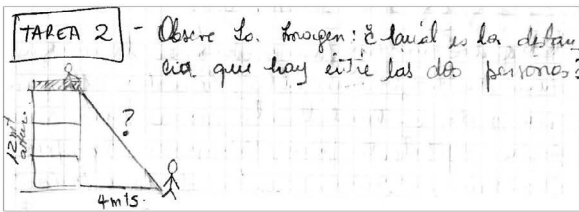 TAREA 2 - Observe la Imagen: ¿Cuál es la distan
cia que hay entre las dos personas?
?
12 mts
altura
4 mts.